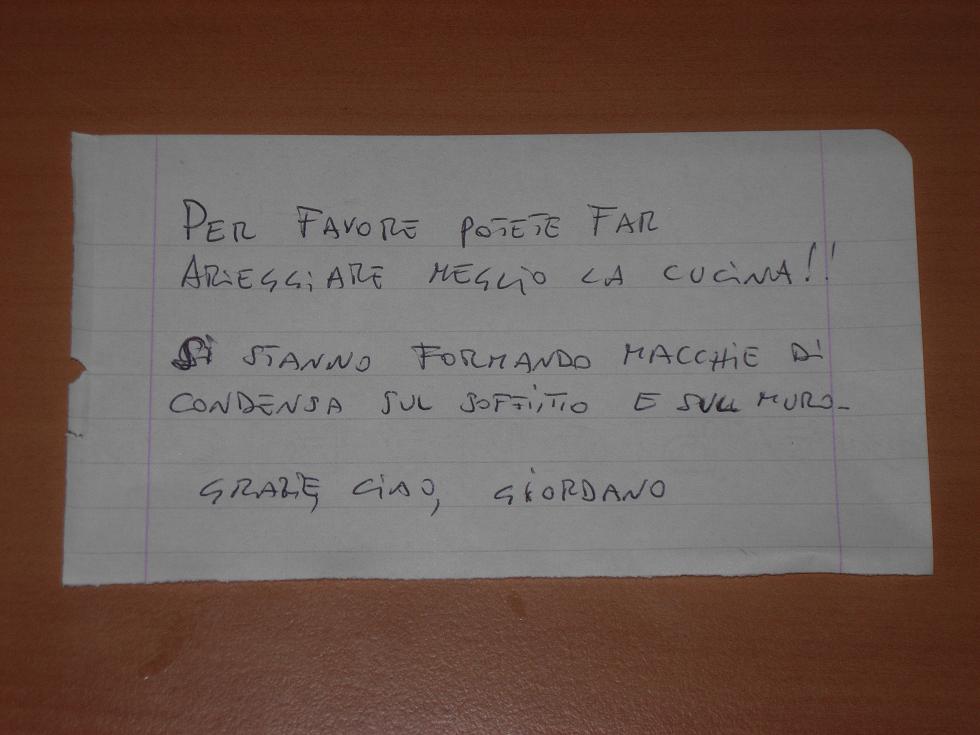 PER FAVORE POTETE FAR
ARIEGGIARE MEGLIO LA CUCINA!!
SI STANNO FORMANDO MACCHIE DI
CONDENSA SUL SOFFITTO E SULL MURO-
GRAZIE, CIAO, GIORDANO